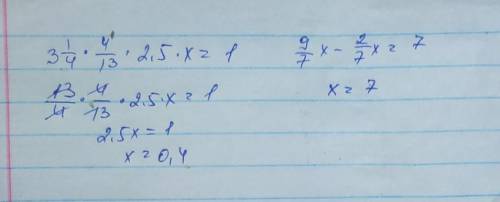 3 1/4 · 4/13 · 2,5 · x = 1
13/4 · 4/13 · 2,5 · x = 1
2,5x = 1
x = 0,4
9/7 x - 2/7 x = 7
x = 7